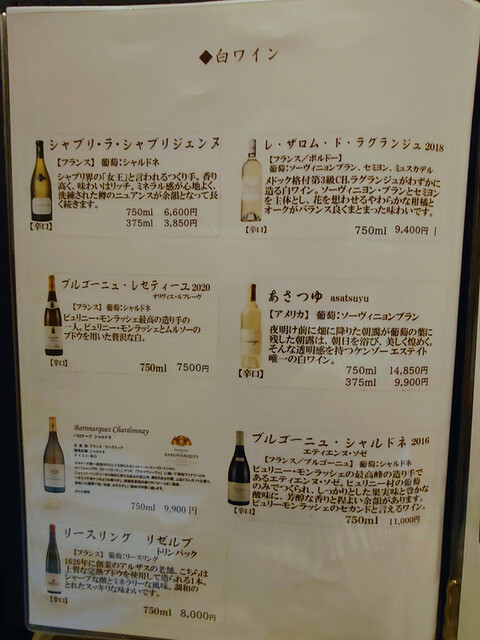 ◆白ワイン
シャブリ・ラ・シャブリジェンヌ
【フランス】 葡萄：シャルドネ
シャブリ界の「女王」と言われるつくり手。香り
高く、味わいはリッチ。ミネラル感が心地よく、
洗練された樽のニュアンスが余韻となって長
く続きます。
750ml 6,600円
375ml 3,850円
【辛口】
レ・ザロム・ド・ラグランジュ 2018
【フランス／ボルドー】
葡萄：ソーヴィニョンブラン、セミヨン、ミュスカデル
メドック格付第3級CH.ラグランジュがわずかに
造る白ワイン。ソーヴィニヨン・ブランとセミヨン
を主体とし、花を想わせるやわらかな柑橘と
オークがバランス良くまとまった味わいです。
750ml 9,400円
【辛口】
ブルゴーニュ・レセティーユ 2020
オリヴィエ・ルフレーヴ
【フランス】 葡萄：シャルドネ
ピュリニー・モンラッシェ最高の造り手の
一人。ピュリニー・モンラッシェとムルソーの
ブドウを用いた贅沢な白。
750ml 7500円
【辛口】
あさつゆ asatsuyu
【アメリカ】 葡萄：ソーヴィニョンブラン
夜明け前に畑に降りた朝露が葡萄の葉に
残した朝露は、朝日を浴び、美しく煌めく。
そんな透明感を持つケンゾー エステイト
唯一の白ワイン。
750ml 14,850円
375ml 9,900円
【辛口】
Baronarques Chardonnay
バロナーク シャルドネ
BARONARQUES
750ml 9,900円
ブルゴーニュ・シャルドネ 2016
エティエンヌ・ソゼ
【フランス／ブルゴーニュ】 葡萄：シャルドネ
ピュリニー・モンラッシェの最高峰の造り手で
あるエティエンヌ・ソゼ。ピュリニー村の葡萄
のみでつくられ、しっかりとした果実味と豊かな
酸味に、芳醇な香りと程よい余韻があります。
ピュリニーモンラッシェのセカンドと言えるワイン。
750ml 11,000円
【辛口】
リースリング リゼルブ
トリンバック
【フランス】 葡萄：リースリング
1626年に創業のアルザスの老舗。こちらは
上質な完熟ブドウを使用して造られる1本。
シャープな酸とミネラリーな風味。調和の
とれたスッキリな味わいです。
750ml 8,000円
【辛口】